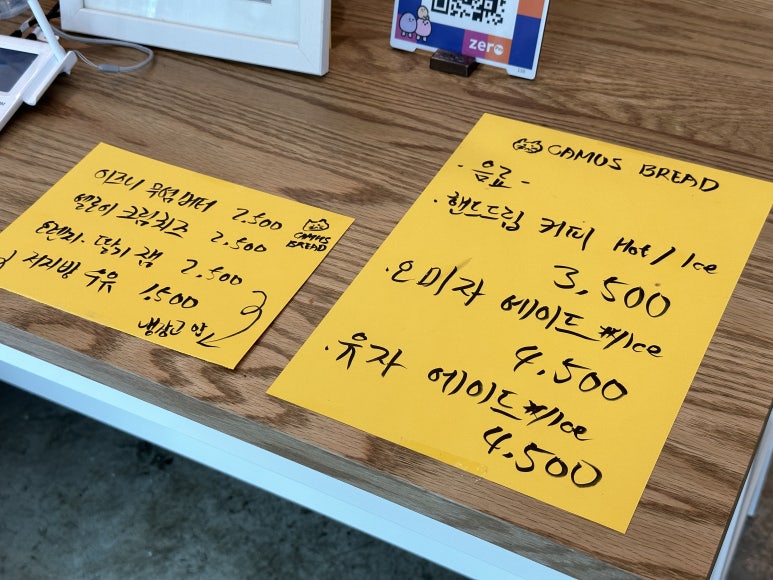 zero
이즈니 무염버터 2,500
엘르이 크림치즈 2,500
오렌지. 딸기 잼 2,500
저지방 우유 1,500
냉장고 앞
CAMUS
BREAD
CAMUS BREAD
· 음료 -
· 핸드드립 커피 Hot / Ice
3,500
· 오미자 에이드 Ice
4,500
· 유자 에이드 Ice
4,500